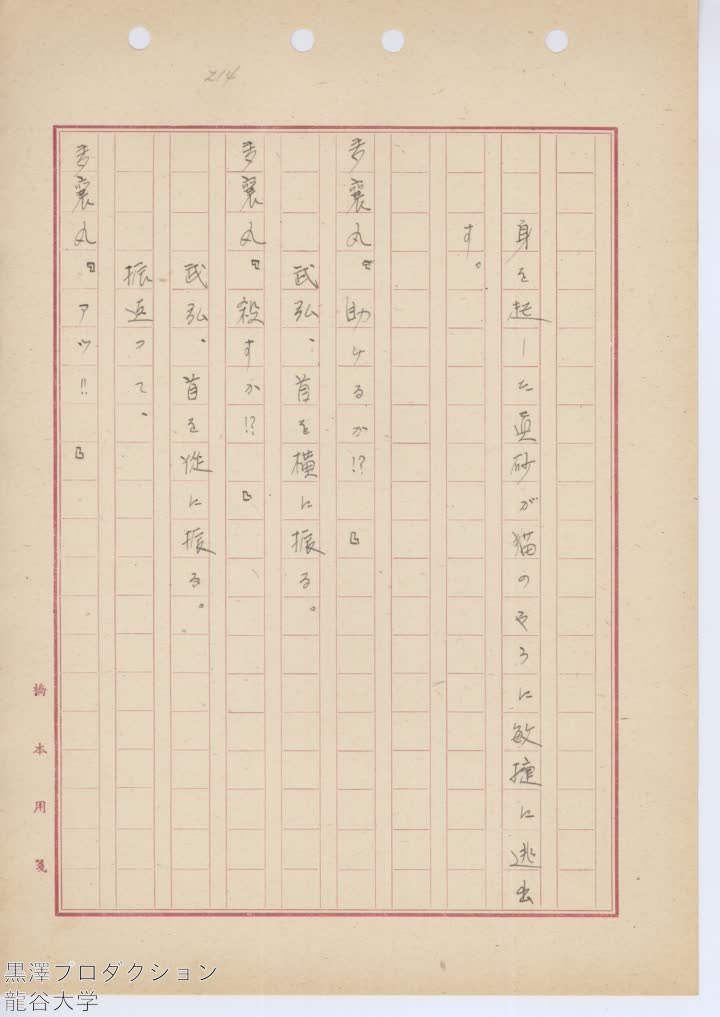 214
身を起した真砂が猫のやうに敏捷に逃出
す。
多襄丸『助けるか!?』
武弘、首を横に振る。
多襄丸『殺すか!?』
武弘、首を従に振る。
振返って、
多襄丸『アツ!!』
橋本用箋
黒澤プロダクション
龍谷大学